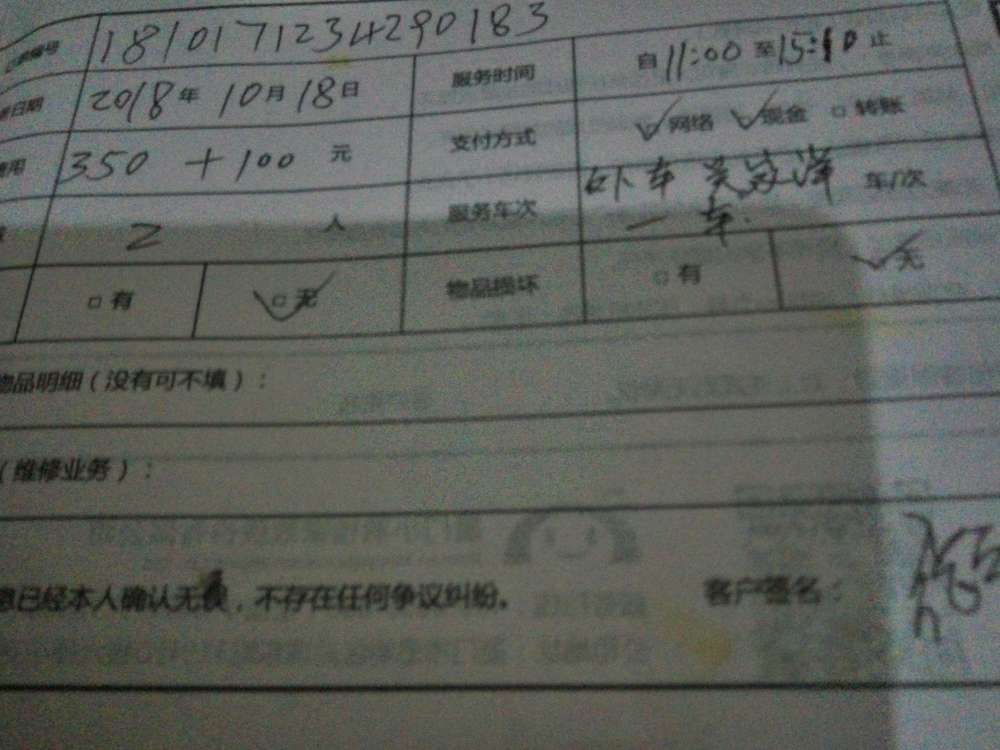 编号 18101711234290183
日期 2018年 10月18日 服务时间 自11:00至15:10止
用 350 + 100 元 支付方式 网络 现金 转账
2 人 服务车次 外车吴家洋 车/次
一车.
有 无 物品损坏 有 无
物品明细（没有可不填）：
（维修业务）：
息已经本人确认无误，不存在任何争议纠纷。 客户签名：